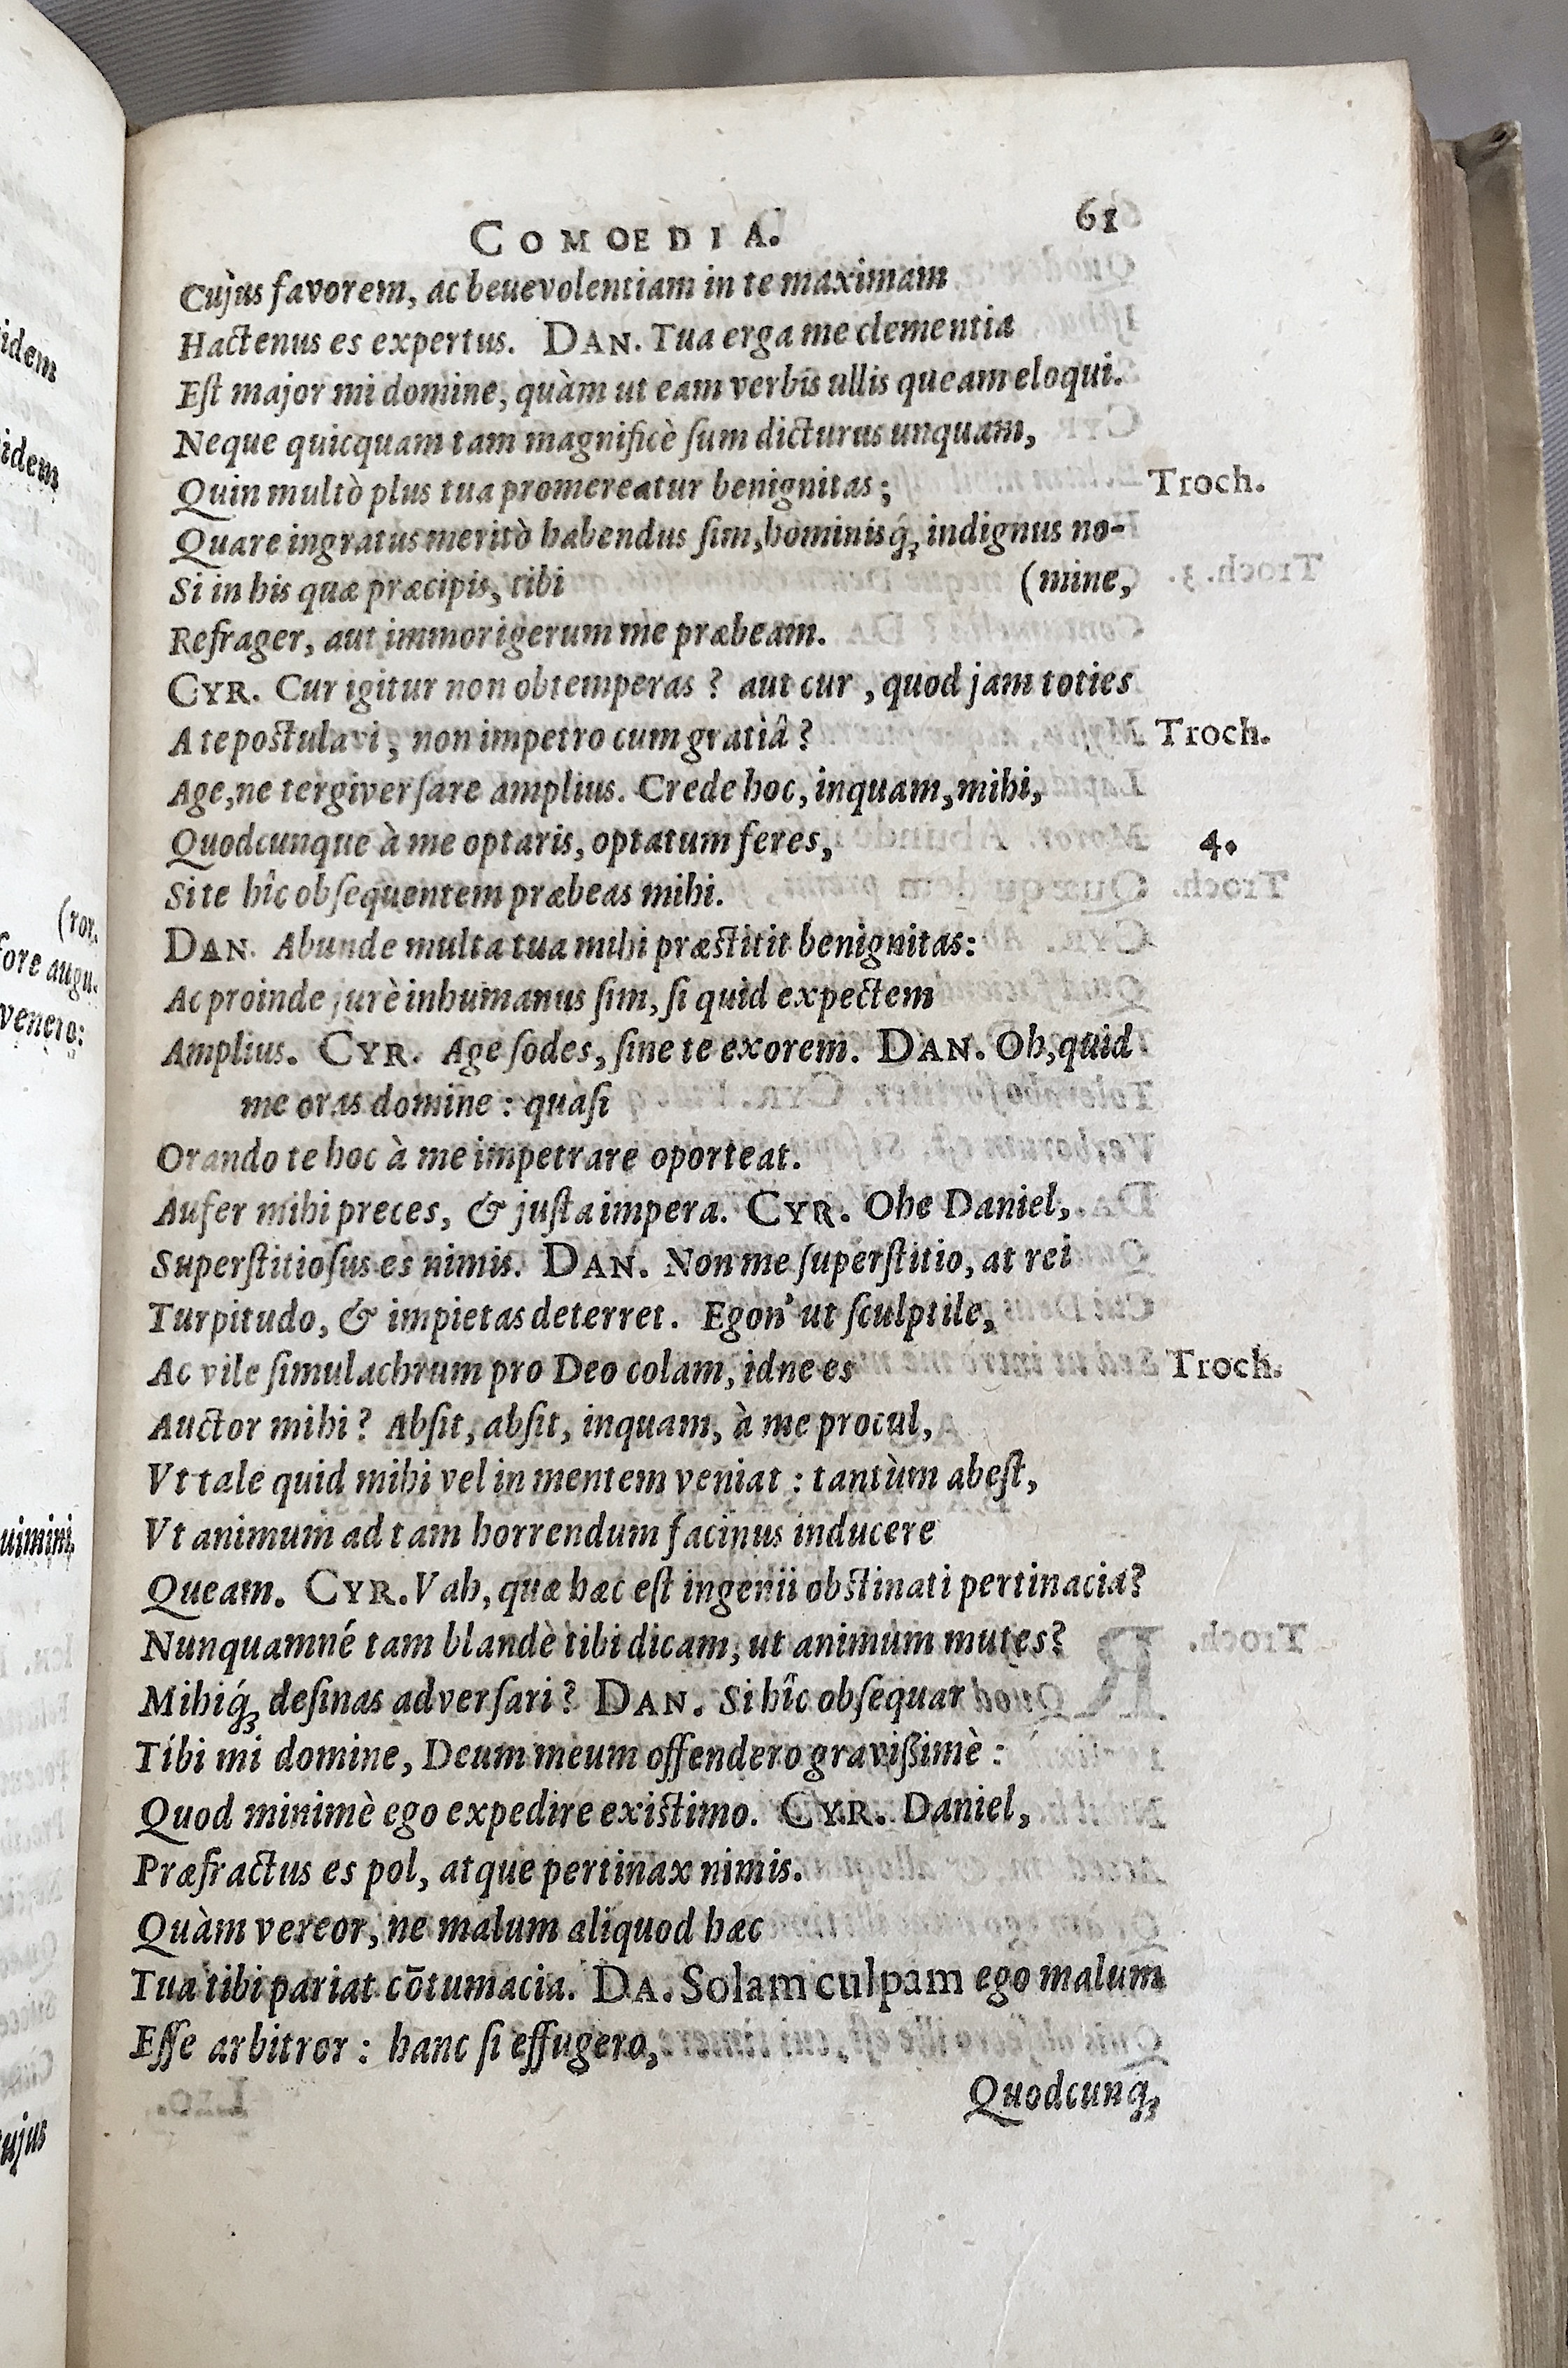 COMOEDIA. 61
Cujus favorem, ac beuevolentiam in te maximam
Hactenus es expertus. DAN. Tua erga me clementia
Eſt major mi domine, quàm ut eam verbis ullis queam eloqui.
Neque quicquam tam magnificè ſum dicturus unquam,
Quin multò plus tua promereatur benignitas; Troch.
Quare ingratus meritò habendus ſim, hominisq́ꝫ indignus no-
Si in his quæ præcipis, tibi (mine,
Refrager, aut immorigerum me præbeam.
CYR. Cur igitur non obtemperas? aut cur, quod jam toties
A te poſtulavi, non impetro cum gratiâ? Troch.
Age, ne tergiverſare amplius. Crede hoc, inquam, mihi,
Quodcunque à me optaris, optatum feres, 4.
Si te hîc obſequentem præbeas mihi.
DAN. Abunde multa tua mihi præſtitit benignitas:
Ac proinde jurè inhumanus ſim, ſi quid expectem
Amplius. CYR. Age ſodes, ſine te exorem. DAN. Oh, quid
me oras domine: quàſi
Orando te hoc à me impetrare oporteat.
Aufer mihi preces, & juſta impera. CYR. Ohe Daniel,
Superſtitioſus es nimis. DAN. Non me ſuperſtitio, at rei
Turpitudo, & impietas deterret. Egon' ut ſculptile,
Ac vile ſimulachrum pro Deo colam, idne es Troch.
Auctor mihi? Abſit, abſit, inquam, à me procul,
Vt tale quid mihi vel in mentem veniat: tantùm abeſt,
Vt animum ad tam horrendum facinus inducere
Queam. CYR. Vah, quæ hæc eſt ingenii obſtinati pertinacia?
Nunquamné tam blandè tibi dicam, ut animum mutes?
Mihiq́ꝫ deſinas adverſari? DAN. Si hîc obſequar
Tibi mi domine, Deum meum offendero gravißimè:
Quod minimè ego expedire exiſtimo. CYR. Daniel,
Præfractus es pol, atque pertinax nimis.
Quàm vereor, ne malum aliquod hæc
Tua tibi pariat cōtumacia. DA. Solam culpam ego malum
Eſſe arbitror: hanc ſi effugero,
Quodcunq́ꝫ
idem
idem
(ror.
fore augu-
venero:
uimini.
ujus